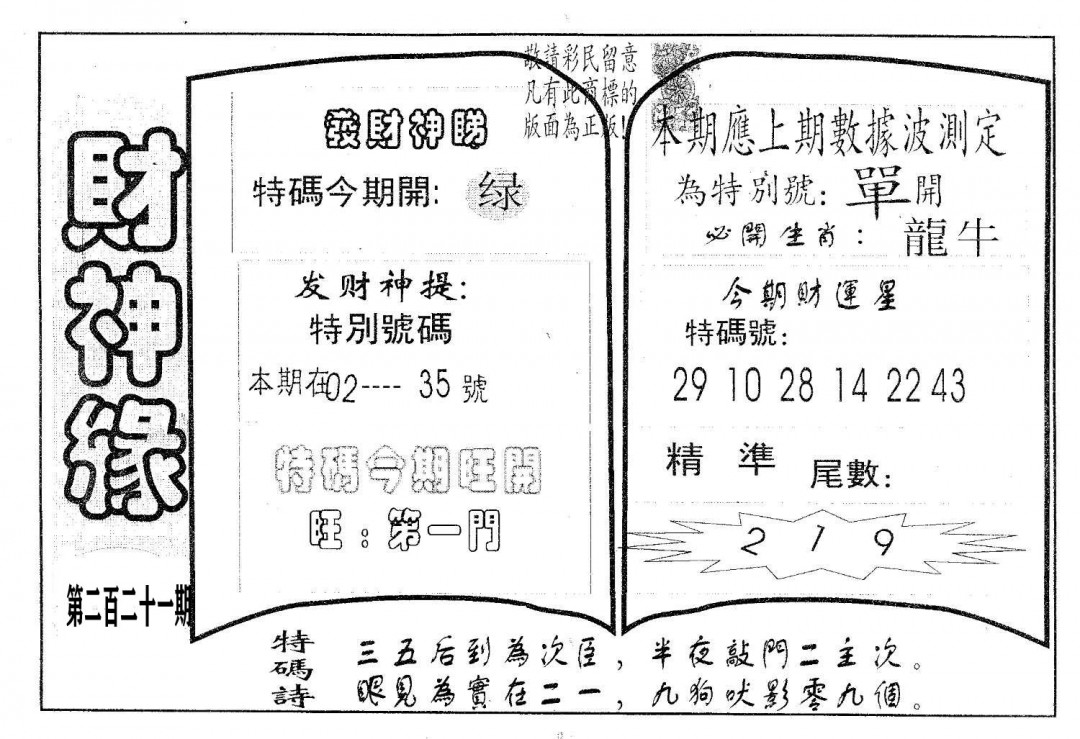 財神緣
第二百二十一期
敬請彩民留意
凡有此商標的
版面為正版!
發財神睇
特碼今期開: 绿
发财神提:
特別號碼
本期在02----35號
特碼今期旺開
旺:第一門
本期應上期數據波測定
為特別號:單開
必開生肖:龍牛
今期財運星
特碼號:
29 10 28 14 22 43
精準 尾數:
2 1 9
特碼詩
三五后到為次臣,半夜敲門二主次。
眼見為實在二一,九狗吠影零九個。